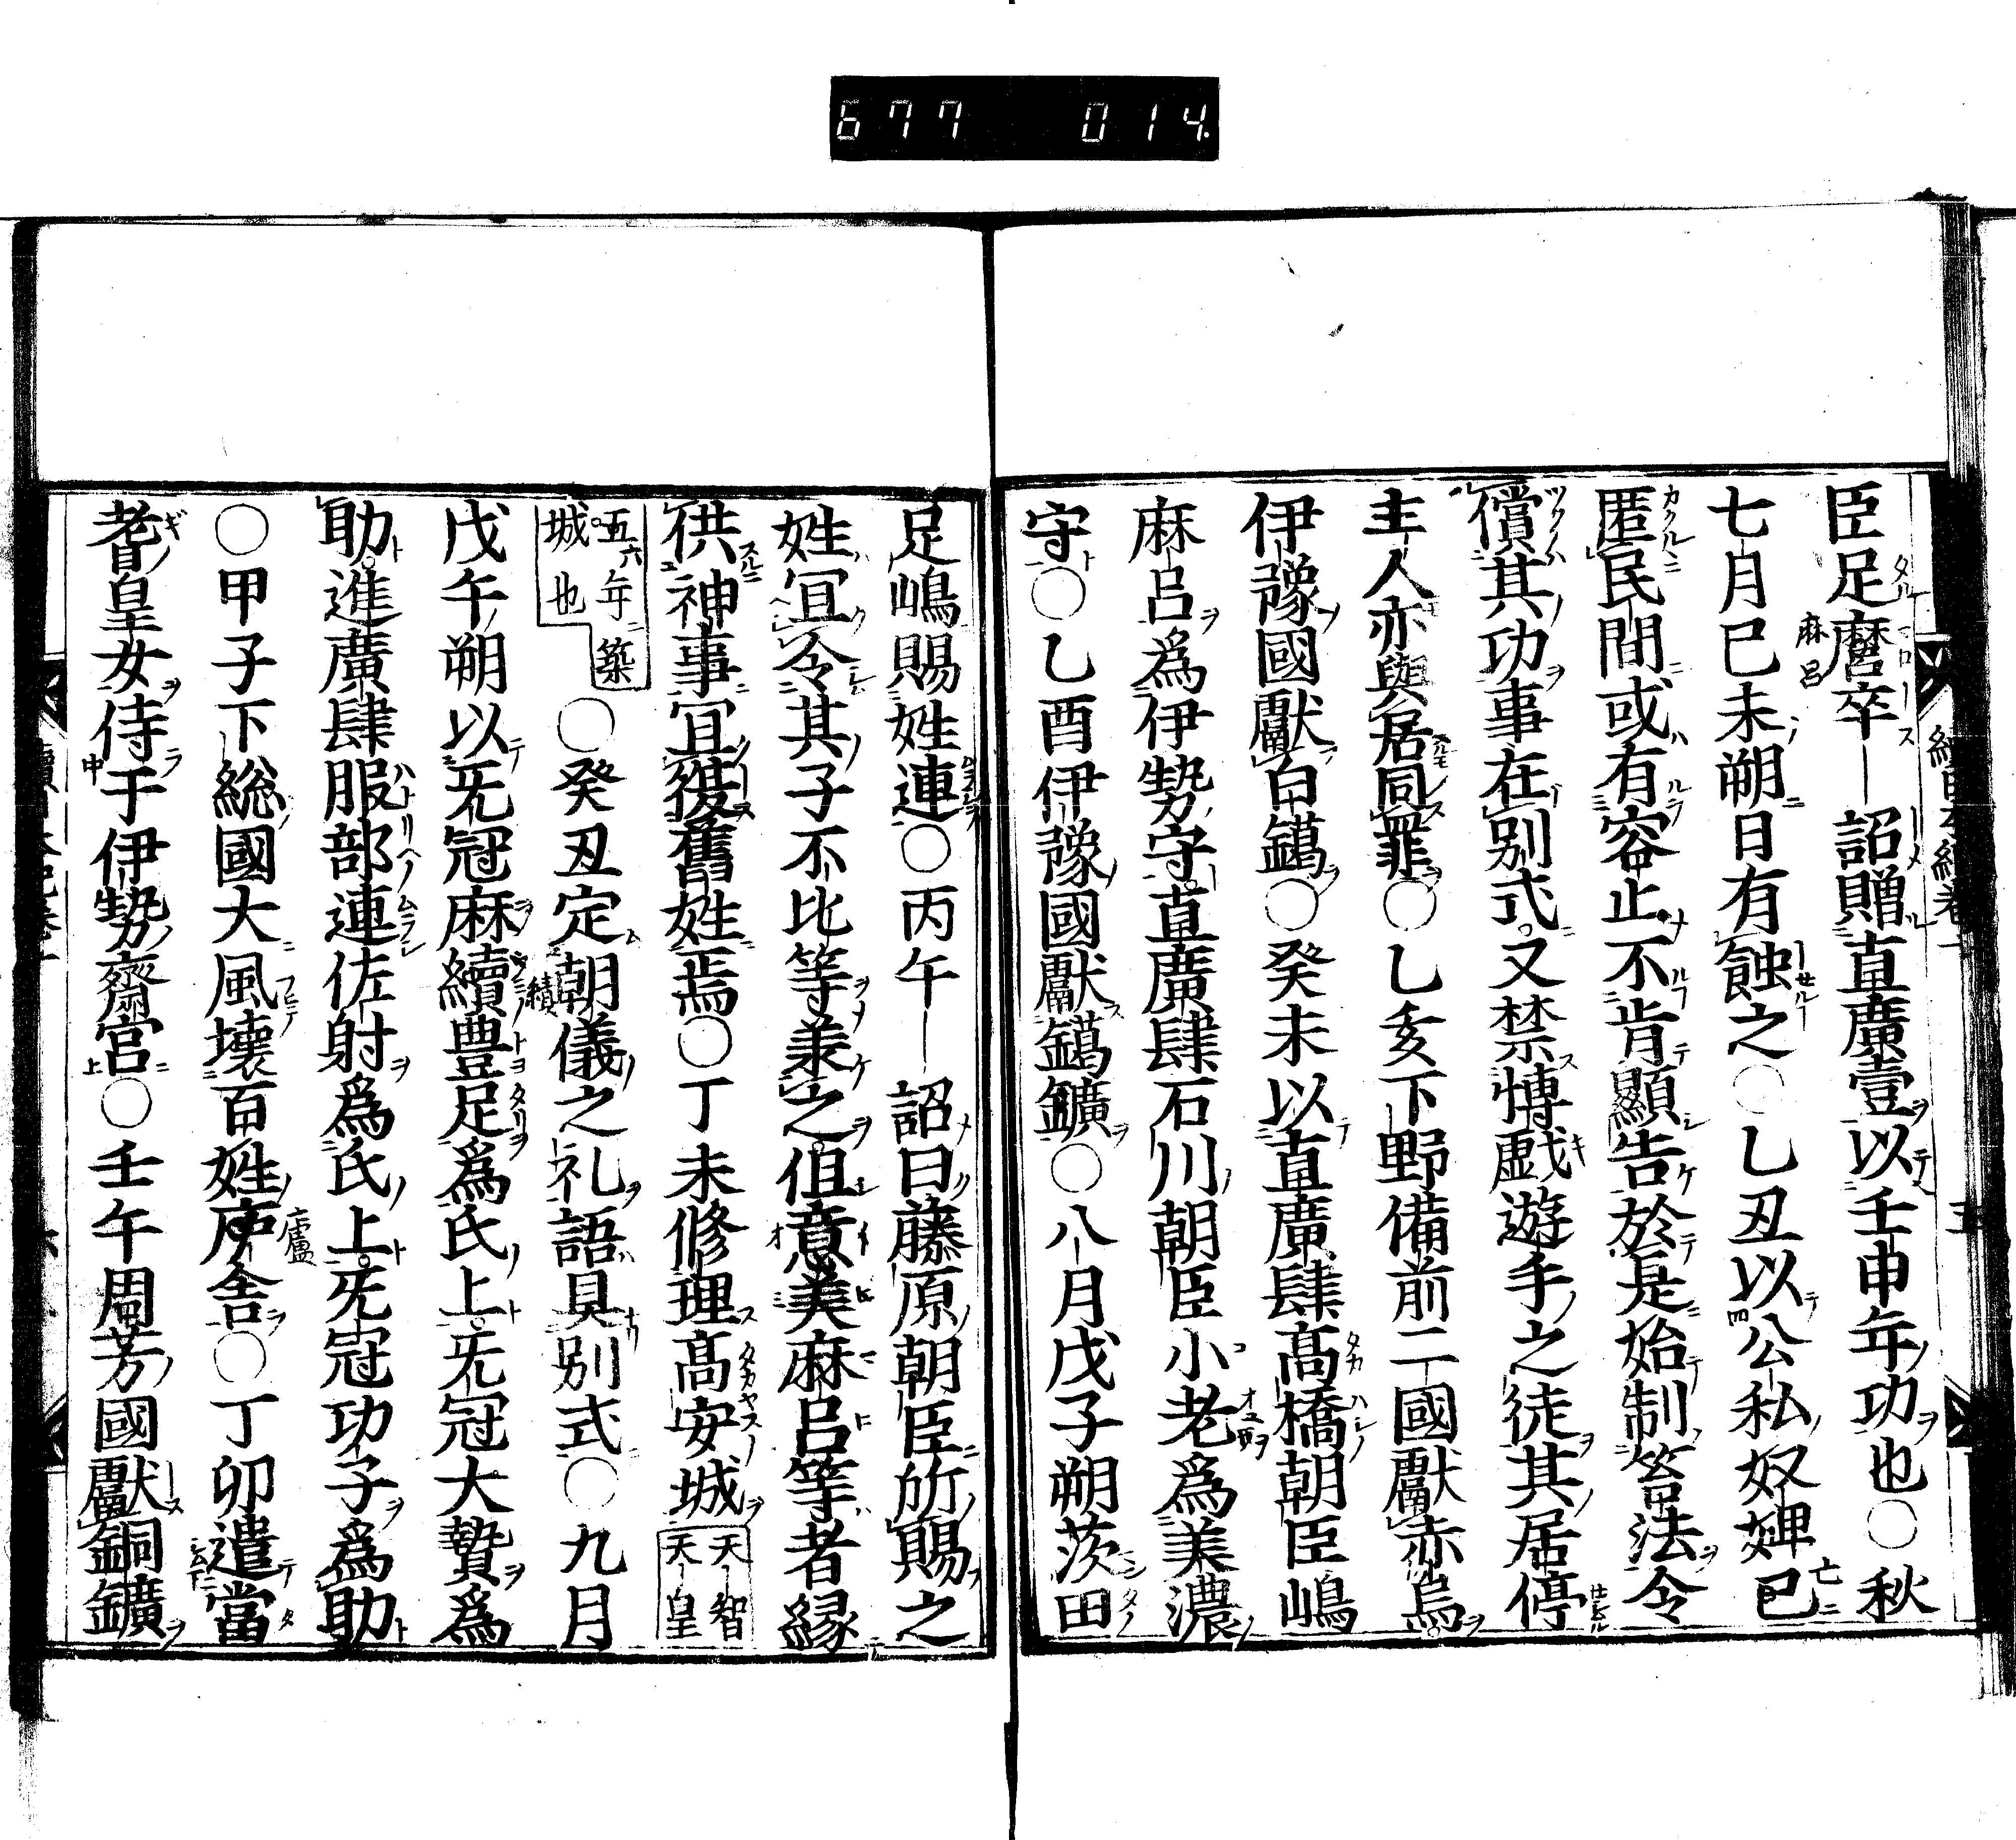 677 014.
臣足麿卒―詔贈直廣壹以壬申年功也○秋
七月己未朔日有蝕之○乙丑以公私奴婢亡
匿民間或有容止不肯顯告於是始制笞法令
償其功事在別式又禁愽戯遊手之徒其居停
主人亦與居同罪○乙亥下野備前二國獻赤烏
伊豫國獻白鑞○癸未以直廣肆髙橋朝臣嶋
麻呂爲伊勢守直廣肆石川朝臣小老爲美濃
守○乙酉伊豫國獻鑞鑛○八月戊子朔茨田
足嶋賜姓連○丙午―詔曰藤原朝臣所賜之
姓宜令其子不比等兼之但意美麻呂等者縁
供神事宜復舊姓焉○丁未修理髙安城天智天皇
五六年築城也○癸丑定朝儀之礼語具別式○九月
戊午朔以无冠麻續豊足爲氏上无冠大贄爲
助進廣肆服部連佐射爲氏上无冠功子爲助
○甲子下総國大風壞百姓庐舎○丁卯遣當
耆皇女侍于伊勢齋宮○壬午周芳國獻銅鑛